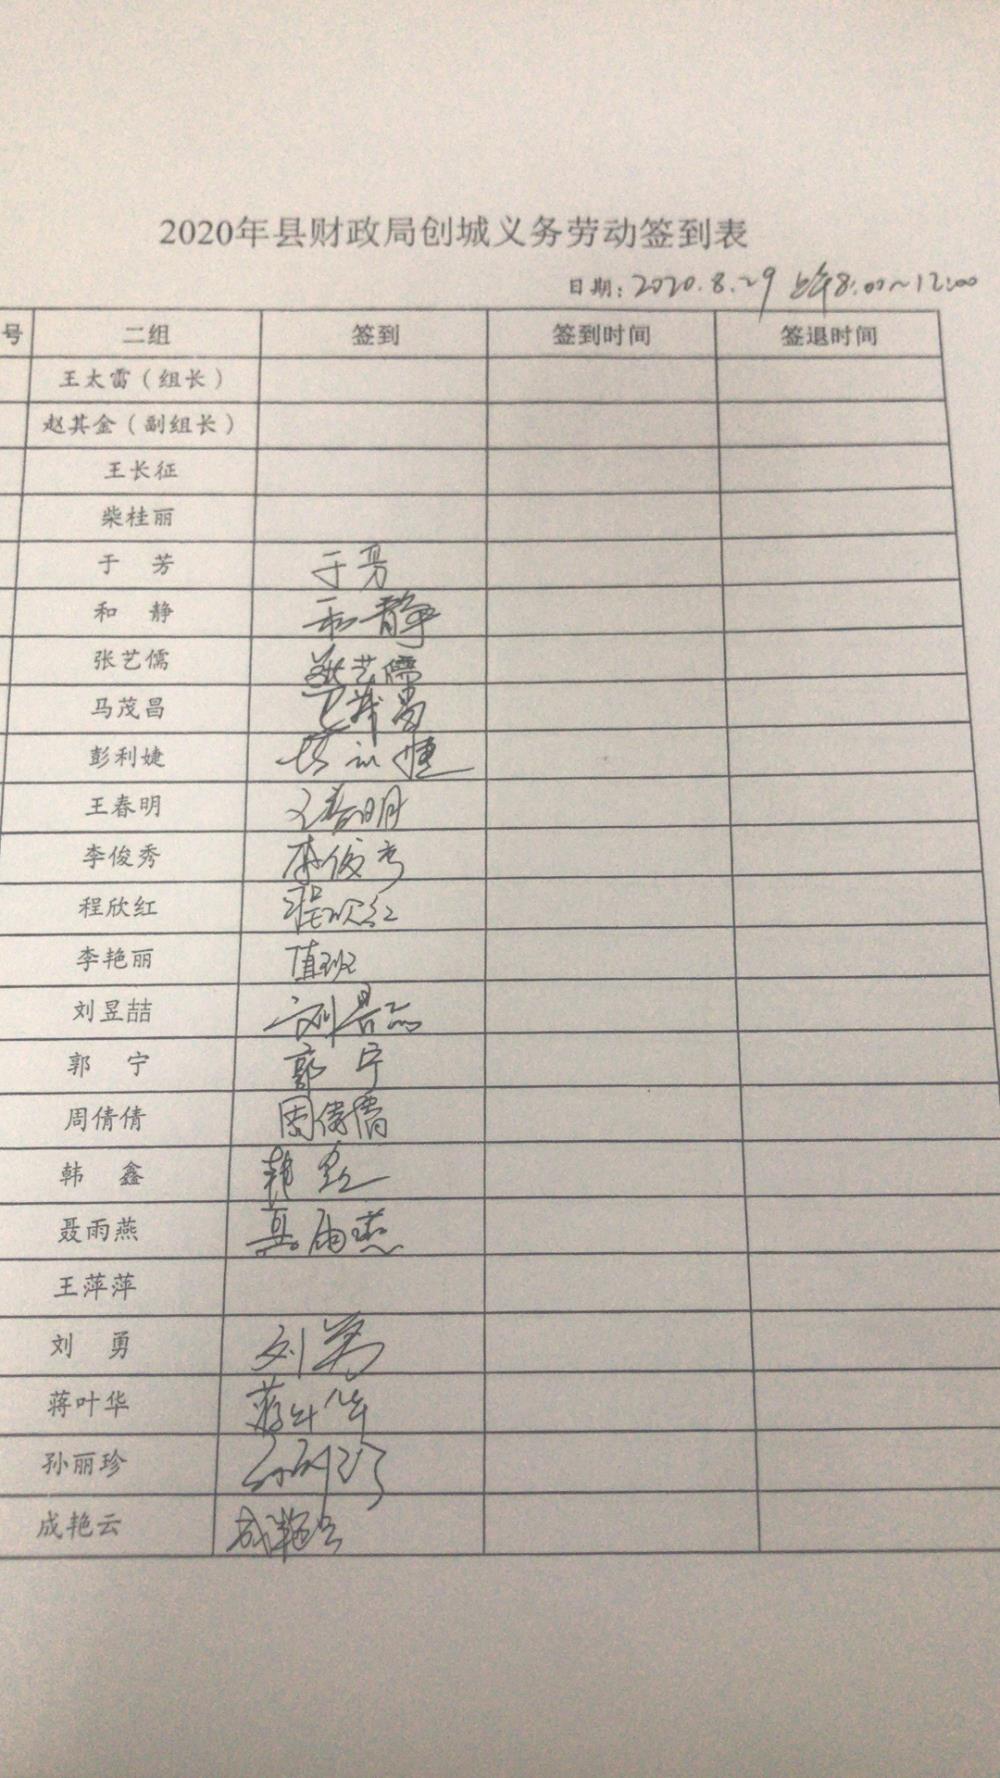 2020年县财政局创城义务劳动签到表
日期：2020.8.29 上午8:00~12:00
号 二组 签到 签到时间 签退时间
王太雷（组长）
赵其金（副组长）
王长征
柴桂丽
于 芳 于芳
和 静 和静
张艺儒 张艺儒
马茂昌 马茂昌
彭利婕 彭利婕
王春明 王春明
李俊秀 李俊秀
程欣红 程欣红
李艳丽 值班
刘昱喆 刘昱喆
郭 宁 郭宁
周倩倩 周倩倩
韩 鑫 韩鑫
聂雨燕 聂雨燕
王萍萍
刘 勇 刘勇
蒋叶华 蒋叶华
孙丽珍 孙丽珍
成艳云 成艳云